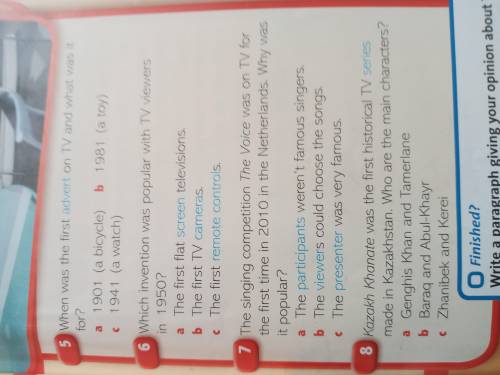 5 When was the first advert on TV and what was it
for?
a 1901 (a bicycle) b 1981 (a toy)
c 1941 (a watch)
6 Which invention was popular with TV viewers
in 1950?
a The first flat screen televisions.
b The first TV cameras.
c The first remote controls.
7 The singing competition The Voice was on TV for
the first time in 2010 in the Netherlands. Why was
it popular?
a The participants weren't famous singers.
b The viewers could choose the songs.
c The presenter was very famous.
8 Kazakh Khanate was the first historical TV series
made in Kazakhstan. Who are the main characters?
a Genghis Khan and Tamerlane
b Baraq and Abul-Khayr
c Zhanibek and Kerei
Finished?
Write a paragraph giving your opinion about